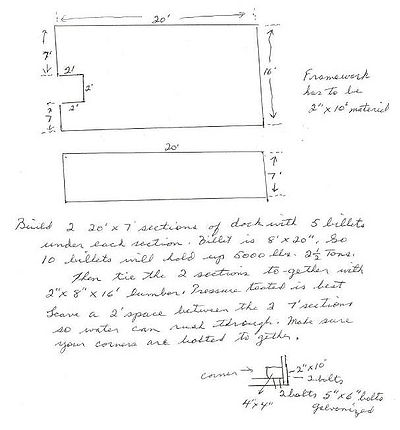 20'
7'
2'
2'
2'
7
16'
Framework
has to be
2" x 10" material
20'
7'
Build 2 20' x 7' sections of dock with 5 billets
under each section. Billet is 8' x 20". So
10 billets will hold up 5000 lbs. 2½ Tons.
Then tie the 2 sections to-gether with
2" x 8" x 16' lumber. Pressure treated is best
Leave a 2' space between the 2 7' sections
so water can rush through. Make sure
your corners are bolted to gether.
corner
2" x 10"
2 bolts
2 bolts 5" x 6" bolts
4" x 4"
galvonized